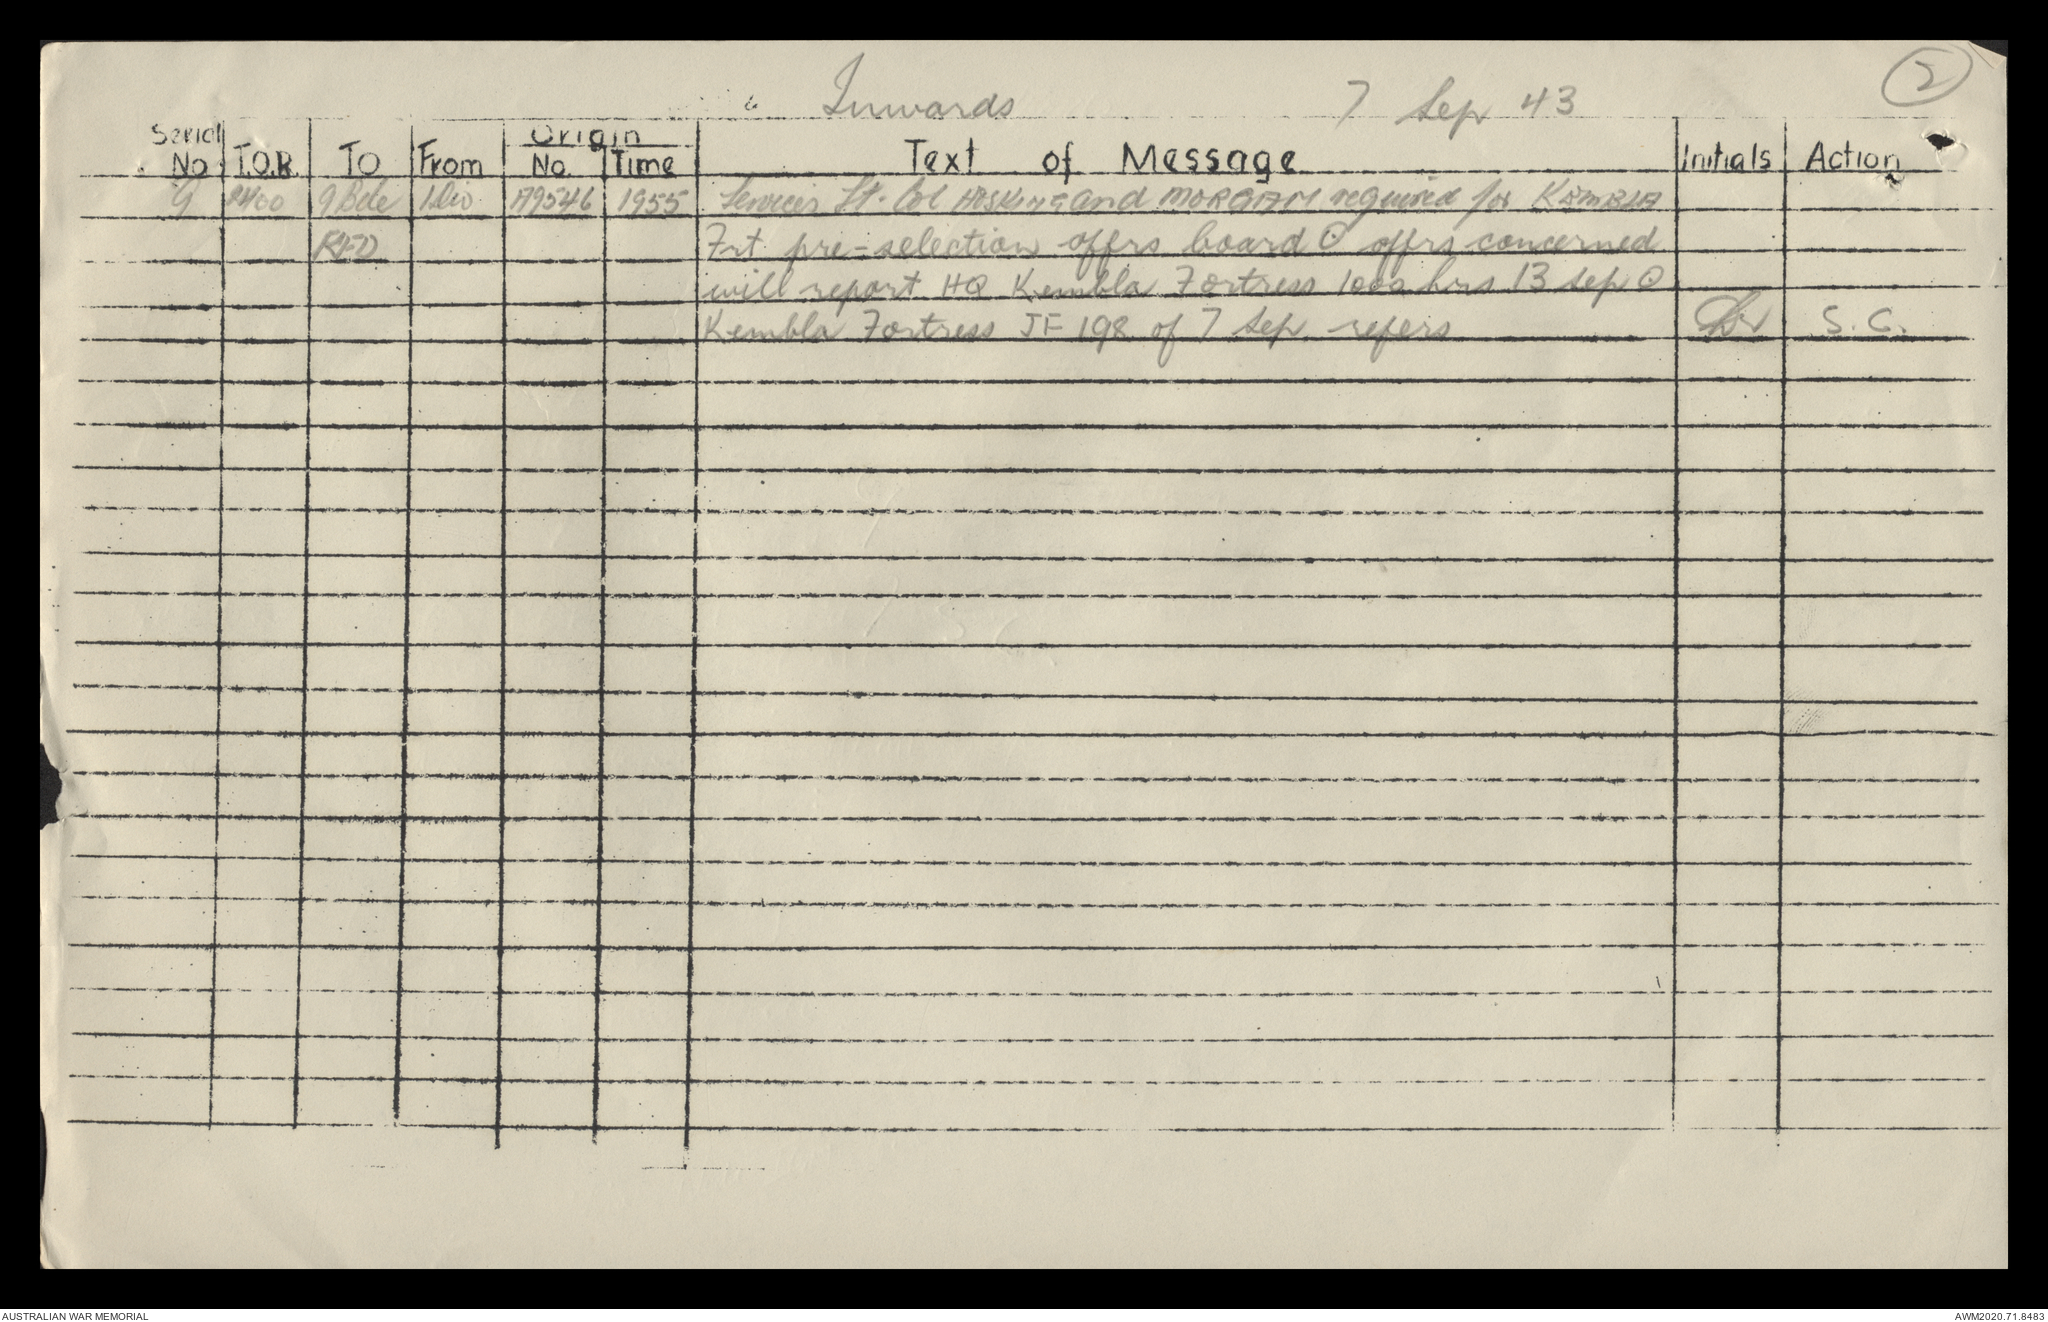 Inwards 7 Sep 43 2
Serial No T.O.R. TO From Origin No Time Text of Message Initials Action
9 2400 9 Bde 1 Div A9546 1955 Services Lt. Col HOSKING and MORGAN required for KEMBLA
Frt pre-selection offrs board ⊙ offrs concerned
will report HQ Kembla Fortress 1000 hrs 13 Sep ⊙
Kembla Fortress JF 198 of 7 Sep refers S. C.
AUSTRALIAN WAR MEMORIAL
AWM2020.71.8483